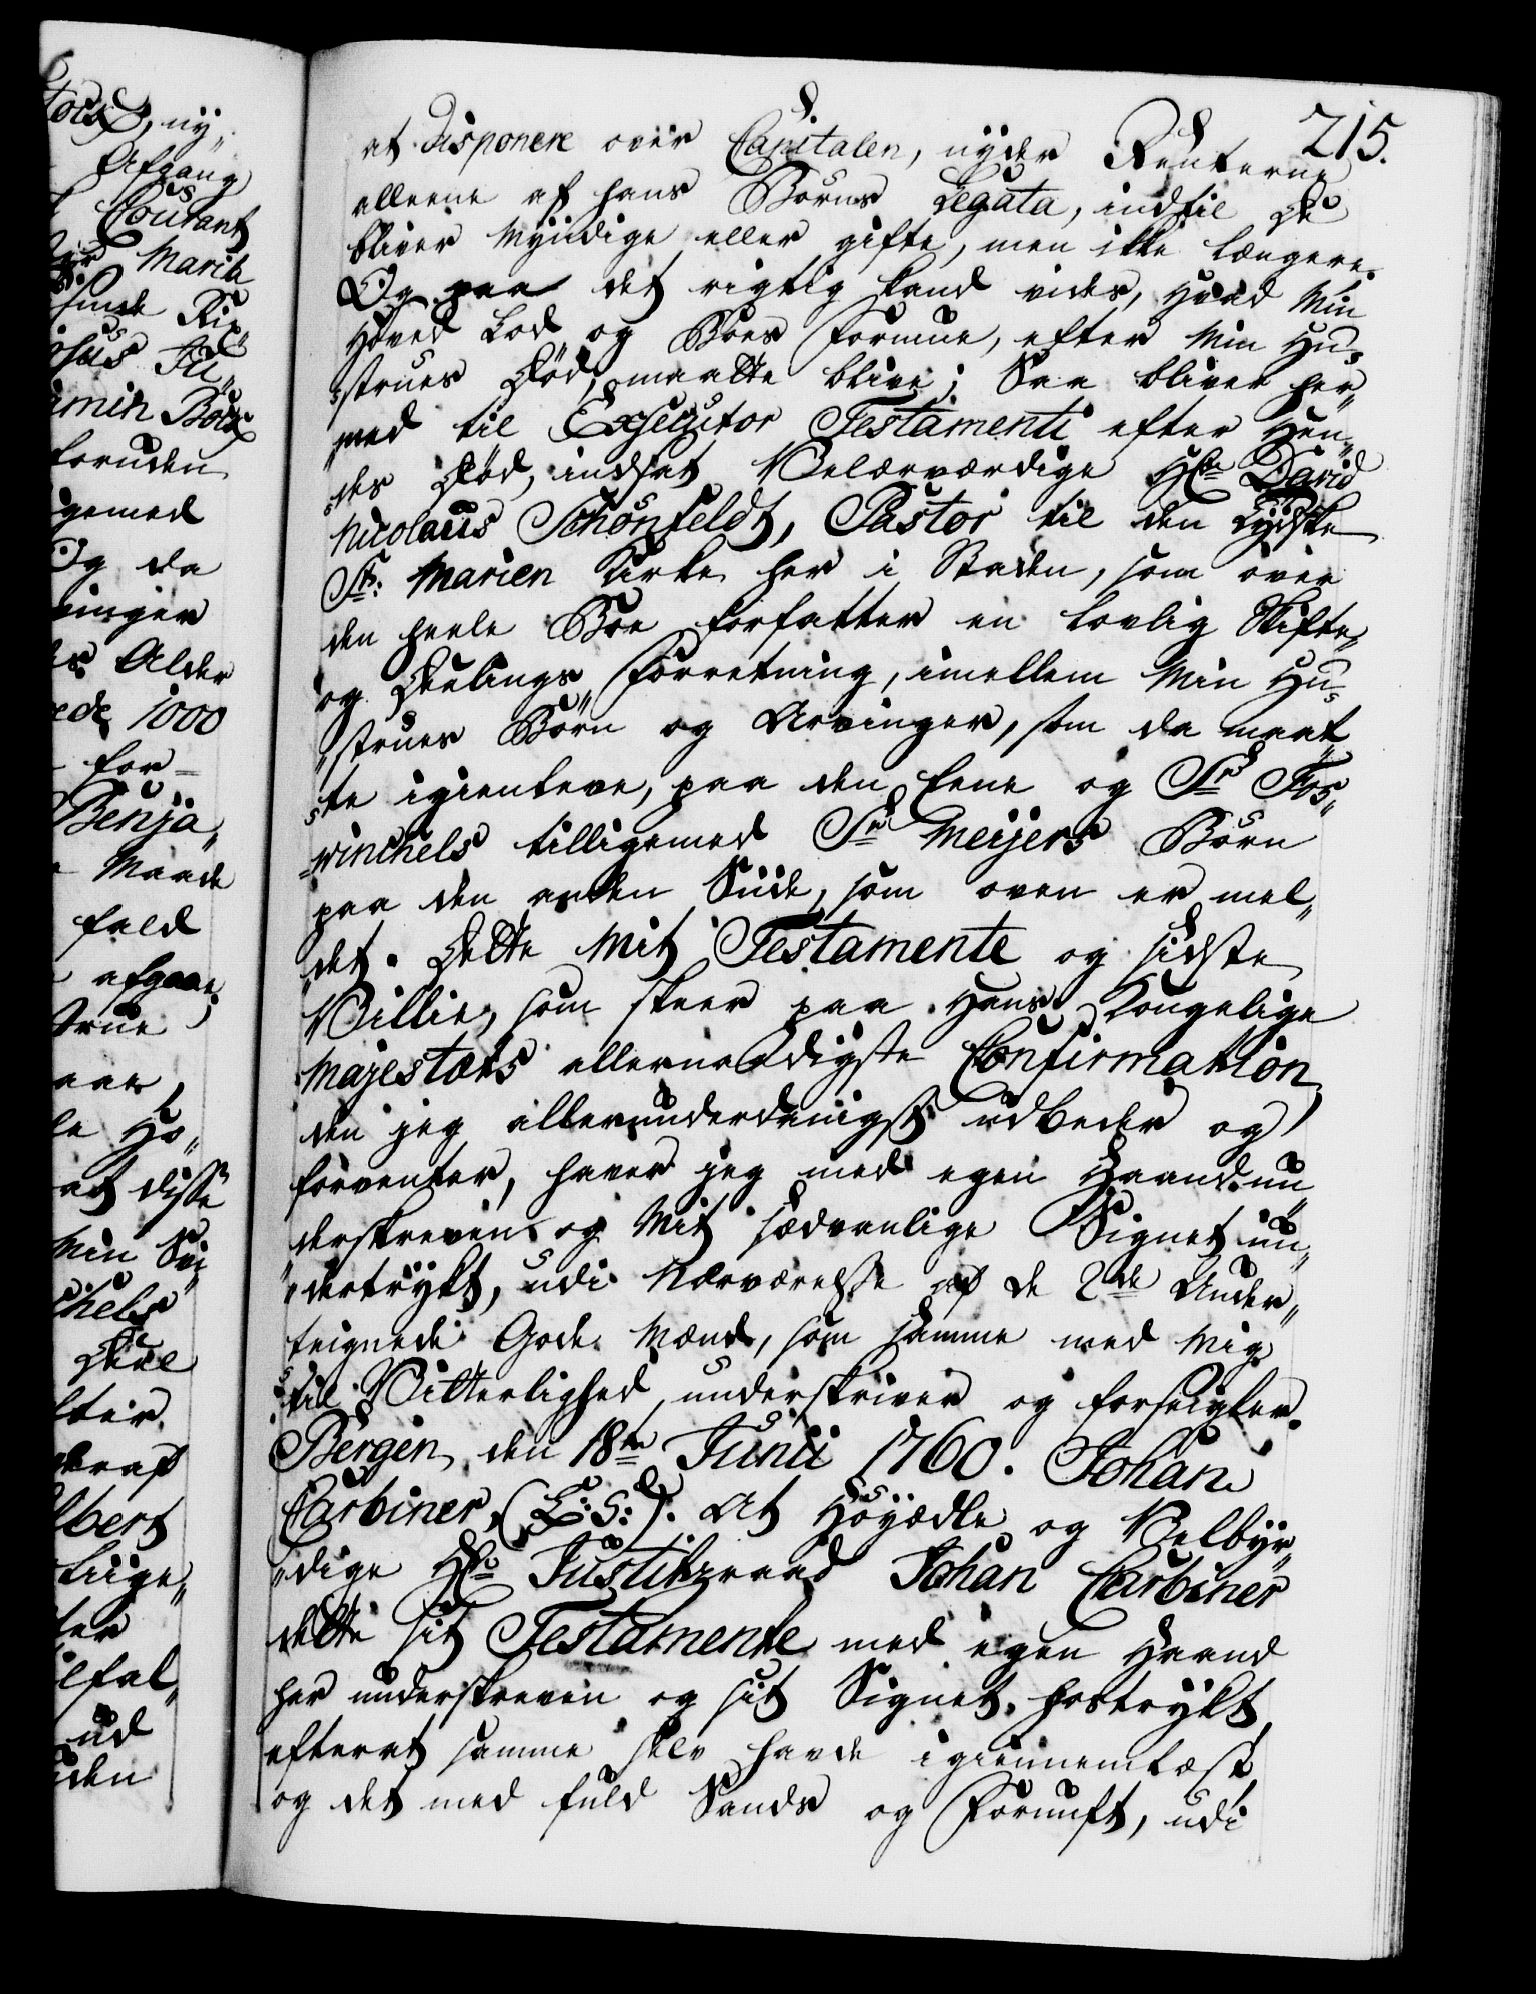 215.
at disponere over Capitalen, nyder Renterne
alleene af hans Børns Legata, indtil de
bliver Myndige eller gifte, men ikke længere.
Og paa det rigtig kand vides, hvad Min
Hoved Lod og Boes Formue, efter Min Hu-
strues Død, maatte blive; Saa bliver her„
med til Executor Testamenti efter Hen„
des Død, indsat Velærværdige Hr David
Nicolaus Schönfeldt, Pastor til den Tydske
St: Marien Kirke her i Staden, som over
den heele Boe forfatter en lovlig Skifte„
og Deelings Forretning, imellem Min Hu-
„strues Børn og Arvinger, som da maat„
te igienleve, paa den Eene og Sr Fos„
winchels tilligemed Sr Meijers Børn
paa den anden Siide, som oven er mel„
det. Dette Mit Testamente og sidste
Villie, som skeer paa Hans Kongelige
Majestæts allernaadigste Confirmation,
den jeg allerunderdanigst udbeder og
forventer, haver jeg med egen Haand un„
derskreven og Mit sædvanlige Signet un„
„dertrykt, udi Nærværelse af de 2de Under„
teignede Gode Mænd, som samme med Mig
til Vitterlighed underskriver og forseigler.
Bergen den 18de Junii 1760. Johan
Carbiner, (L:S:). At Høyædle og Velbyr„
„dige Hr Justitzraad Johan Carbiner
dette sit Testamente med egen Haand
har underskreven og sit Signet hostrykt,
efterat samme selv havde igiennemlæst,
og det med fuld Sands og Fornuft, udi
ny„
Afgang
Courant
Marie
Rix„
Benja„
Maade
fald
afgaae,
Alder
1000
for-
foruden
gemed
Og da
Ho„
at disse
Min Sviˮ
Deel
ud